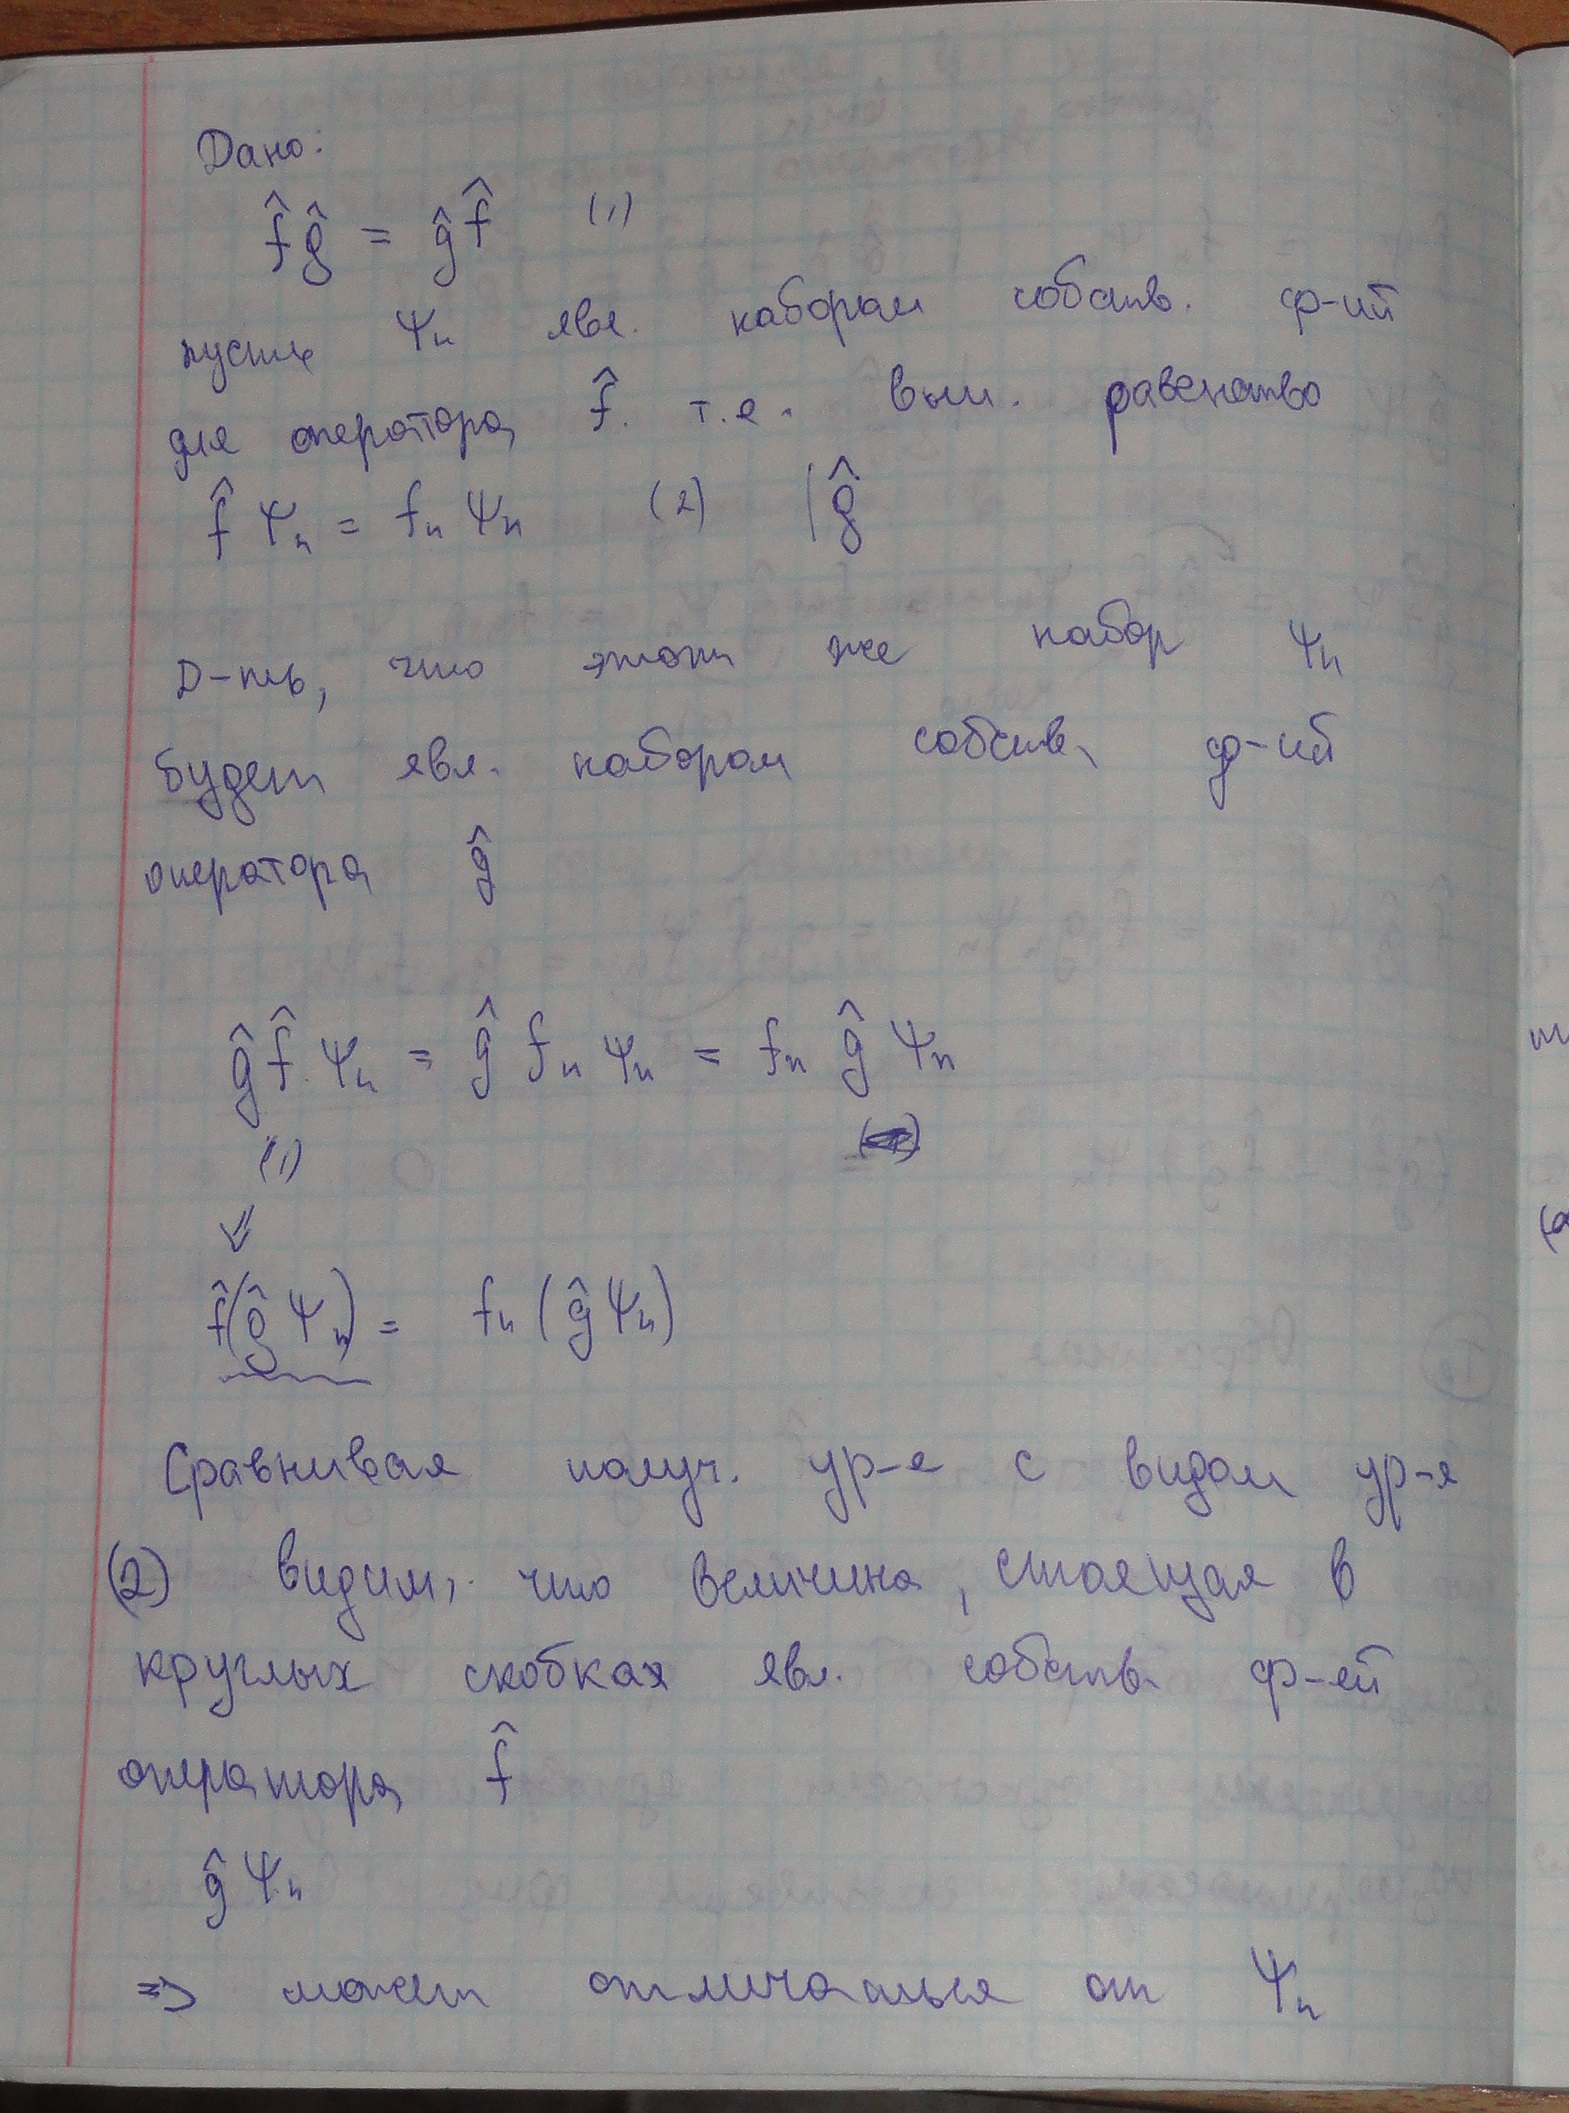 Дано:
f̂ĝ = ĝf̂ (1)
пусть Ψn явл. набором собств. ф-ий
для оператора f̂. т.е. вып. равенство
f̂ Ψn = fn Ψn (2) |ĝ
Д-ть, что этот же набор Ψn
будет явл. набором собств. ф-ий
оператора ĝ
ĝ f̂ Ψn = ĝ fn Ψn = fn ĝ Ψn
(1)
⇓
f̂(ĝ Ψn) = fn (ĝΨn)
Сравнивая получ. ур-е с видом ур-я
(2) видим, что величина, стоящая в
круглых скобках явл. собств. ф-ей
оператора f̂
ĝ Ψn
=> может отличаться от Ψn